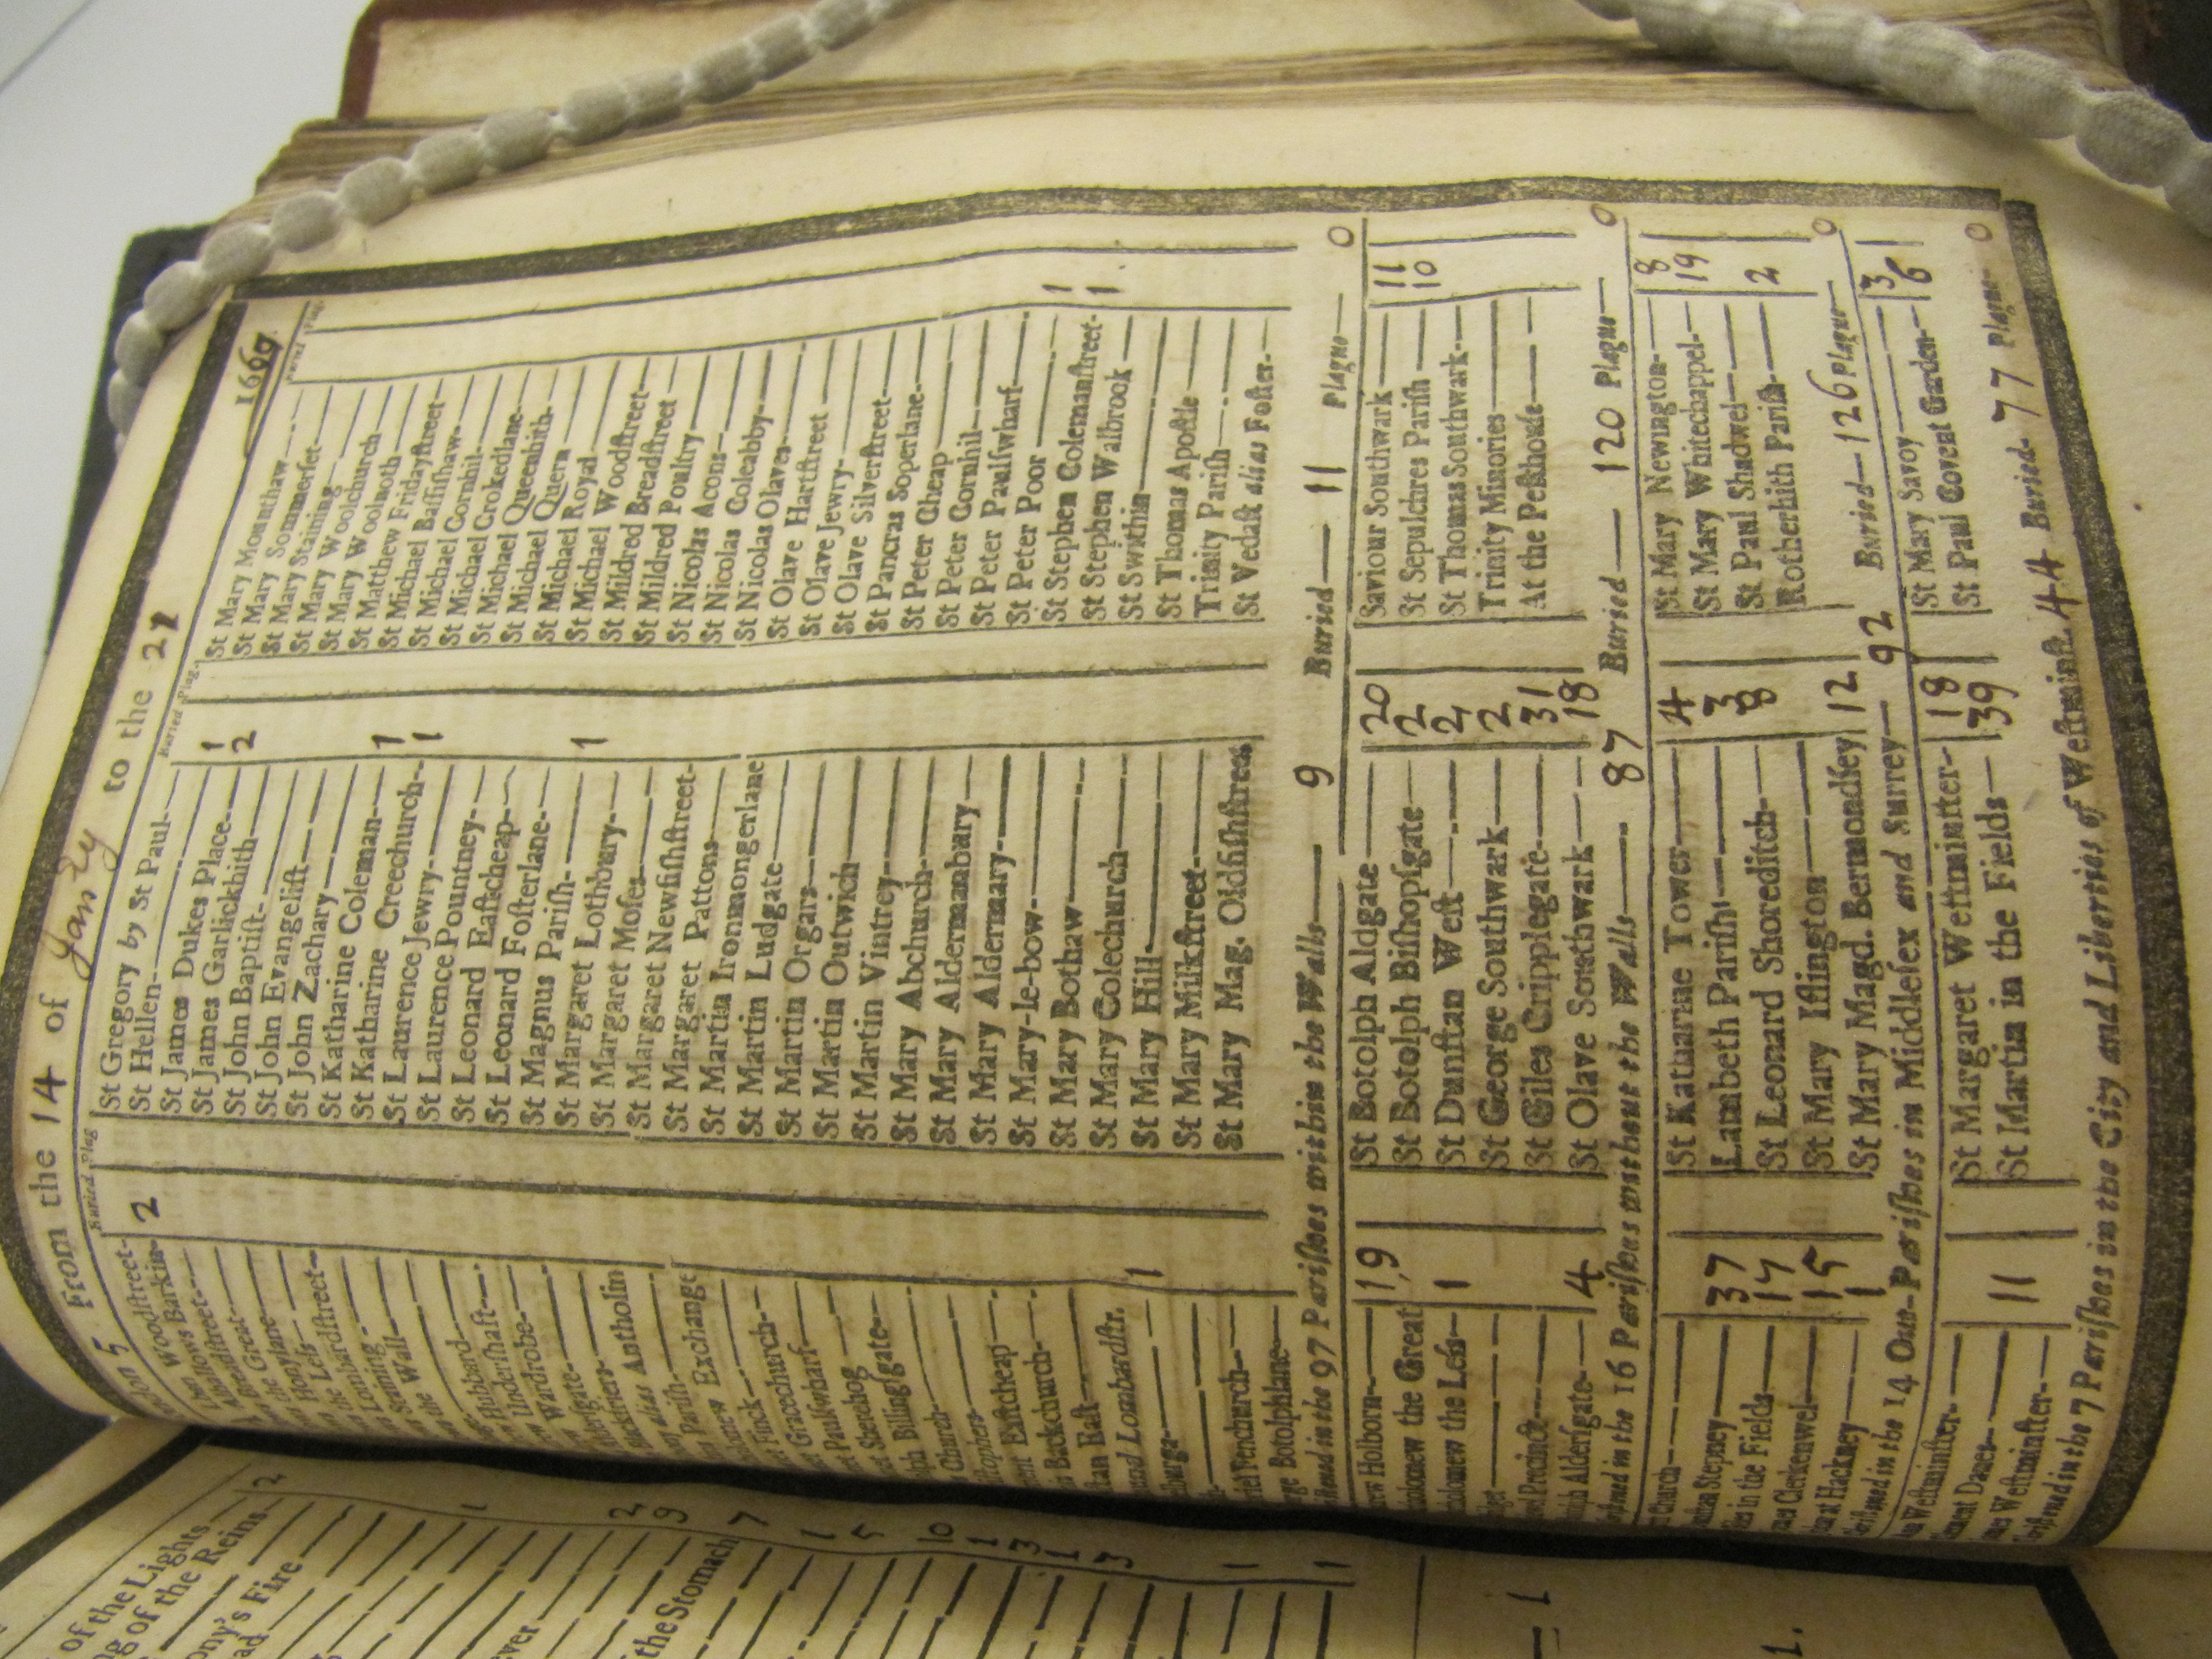 don 5 From the 14 of Janry to the 21 1669
Buried Plag
Woodstreet- 2
Barkin-
Breadstreet-
Great-
Honylane-
Less-
Lombardstreet-
Staining-
the Wall-
Hubbard
Undershaft-
Wardrobe-
alias Antholin
Parish-
Exchange
Finck-
Gracechurch-
Paulswharf-
Sherehog
Billingsgate-
Church-
Eastcheap-
Backchurch-
East-
Lombardstr. 1
Fenchurch-
Botolphlane-
Buried Plag.
St Gregory by St Paul-
St Hellen- 1
St James Dukes Place- 2
St James Garlickhith-
St John Baptist-
St John Evangelist-
St John Zachary-
St Katharine Coleman- 1
St Katharine Creechurch- 1
St Laurence Jewry-
St Laurence Pountney-
St Leonard Eastcheap-
St Leonard Fosterlane-
St Magnus Parish- 1
St Margaret Lothbury-
St Margaret Moses-
St Margaret Newfishstreet-
St Margaret Pattons-
St Martin Ironmongerlane
St Martin Ludgate-
St Martin Orgars-
St Martin Outwich-
St Martin Vintrey-
St Mary Abchurch-
St Mary Aldermanbury-
St Mary Aldermary-
St Mary-le-bow-
St Mary Bothaw-
St Mary Colechurch-
St Mary Hill-
St Mary Milkstreet-
St Mary Mag. Oldfishstreet
Buried Plag.
St Mary Mounthaw-
St Mary Sommerset-
St Mary Staining-
St Mary Woolchurch-
St Mary Woolnoth-
St Matthew Fridaystreet-
St Michael Bassishaw-
St Michael Cornhil-
St Michael Crokedlane-
St Michael Queenhith-
St Michael Quern-
St Michael Royal-
St Michael Woodstreet-
St Mildred Breadstreet-
St Mildred Poultry-
St Nicolas Acons-
St Nicolas Coleabby-
St Nicolas Olaves-
St Olave Hartstreet-
St Olave Jewry-
St Olave Silverstreet-
St Pancras Soperlane-
St Peter Cheap-
St Peter Cornhil-
St Peter Paulswharf-
St Peter Poor-
St Stephen Colemanstreet- 1
St Stephen Walbrook- 1
St Swithin-
St Thomas Apostle-
Trinity Parish-
St Vedast alias Foster-
in the 97 Parishes within the Walls- 9 Buried- 11 Plague- 0
Holborn- 19
the Great
the Less- 1
Precinct-
Aldersgate- 4
St Botolph Aldgate- 20
St Botolph Bishopsgate- 2
St Dunstan West- 2
St George Southwark- 2
St Giles Cripplegate- 31
St Olave Southwark- 18
Saviour Southwark- 11
St Sepulchres Parish- 10
St Thomas Southwark-
Trinity Minories-
At the Pesthouse-
in the 16 Parishes without the Walls- 87 Buried- 120 Plague- 0
Church-
Stepney- 37
in the Fields- 17
Clerkenwel- 15
at Hackney- 1
St Katharine Tower- 4
Lambeth Parish- 3
St Leonard Shoreditch- 8
St Mary Islington-
St Mary Magd. Bermondsey 12
St Mary Newington- 8
St Mary Whitechappel- 19
St Paul Shadwel-
Rotherhith Parish- 2
in the 14 Out-Parishes in Middlesex and Surrey- 92 Buried- 126 Plague- 0
Westminster-
Danes-
Westminster- 11
St Margaret Westminster- 18
St Martin in the Fields- 39
St Mary Savoy- 3
St Paul Covent Garden- 6
in the 7 Parishes in the City and Liberties of Westminst. 44 Buried- 77 Plague- 0
of the Lights
of the Reins 2
Fire
1
2
9
the Stomach 7
1
5
10
1
3
1
3
1
1
1
1.